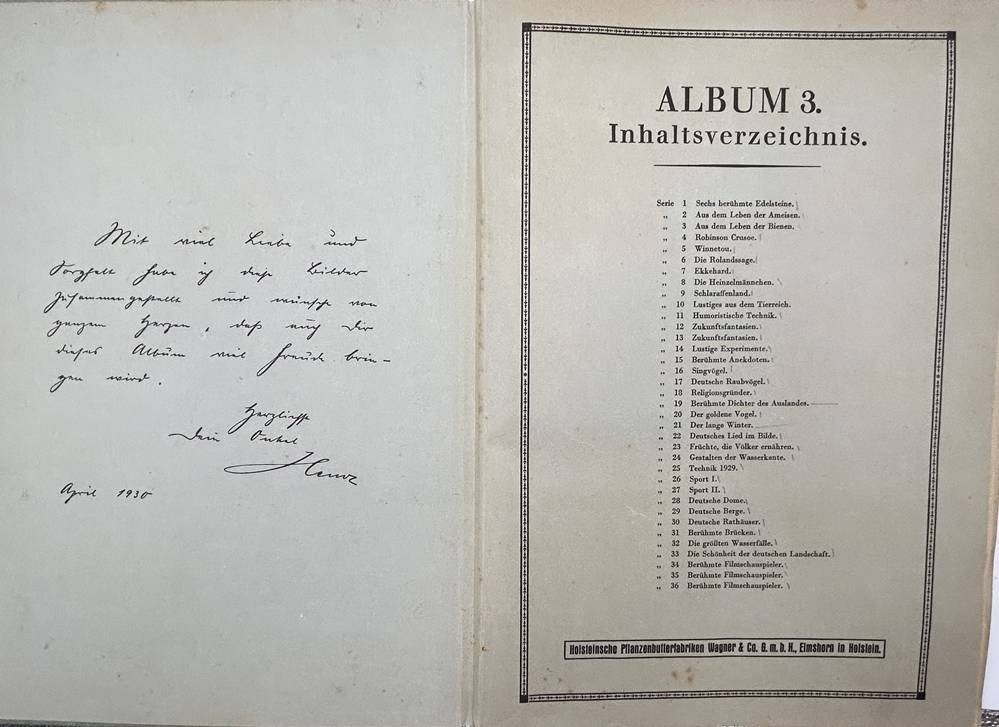 Mit viel Liebe und
Sorgfalt habe ich diese Bilder
zusammengestellt und wünsche von
ganzem Herzen, daß auch Dir
dieses Album viel Freude brin-
gen wird.
Herzlichst
Dein Onkel
April 1930
ALBUM 3.
Inhaltsverzeichnis.
Serie 1 Sechs berühmte Edelsteine.
„ 2 Aus dem Leben der Ameisen.
„ 3 Aus dem Leben der Bienen.
„ 4 Robinson Crusoe.
„ 5 Winnetou.
„ 6 Die Rolandssage.
„ 7 Ekkehard.
„ 8 Die Heinzelmännchen.
„ 9 Schlaraffenland.
„ 10 Lustiges aus dem Tierreich.
„ 11 Humoristische Technik.
„ 12 Zukunftsfantasien.
„ 13 Zukunftsfantasien.
„ 14 Lustige Experimente.
„ 15 Berühmte Anekdoten.
„ 16 Singvögel.
„ 17 Deutsche Raubvögel.
„ 18 Religionsgründer.
„ 19 Berühmte Dichter des Auslandes.
„ 20 Der goldene Vogel.
„ 21 Der lange Winter.
„ 22 Deutsches Lied im Bilde.
„ 23 Früchte, die Völker ernähren.
„ 24 Gestalten der Wasserkante.
„ 25 Technik 1929.
„ 26 Sport I.
„ 27 Sport II.
„ 28 Deutsche Dome.
„ 29 Deutsche Berge.
„ 30 Deutsche Rathäuser.
„ 31 Berühmte Brücken.
„ 32 Die größten Wasserfälle.
„ 33 Die Schönheit der deutschen Landschaft.
„ 34 Berühmte Filmschauspieler.
„ 35 Berühmte Filmschauspieler.
„ 36 Berühmte Filmschauspieler.
Holsteinsche Pflanzenbutterfabriken Wagner & Co. G. m. b. H., Elmshorn in Holstein.